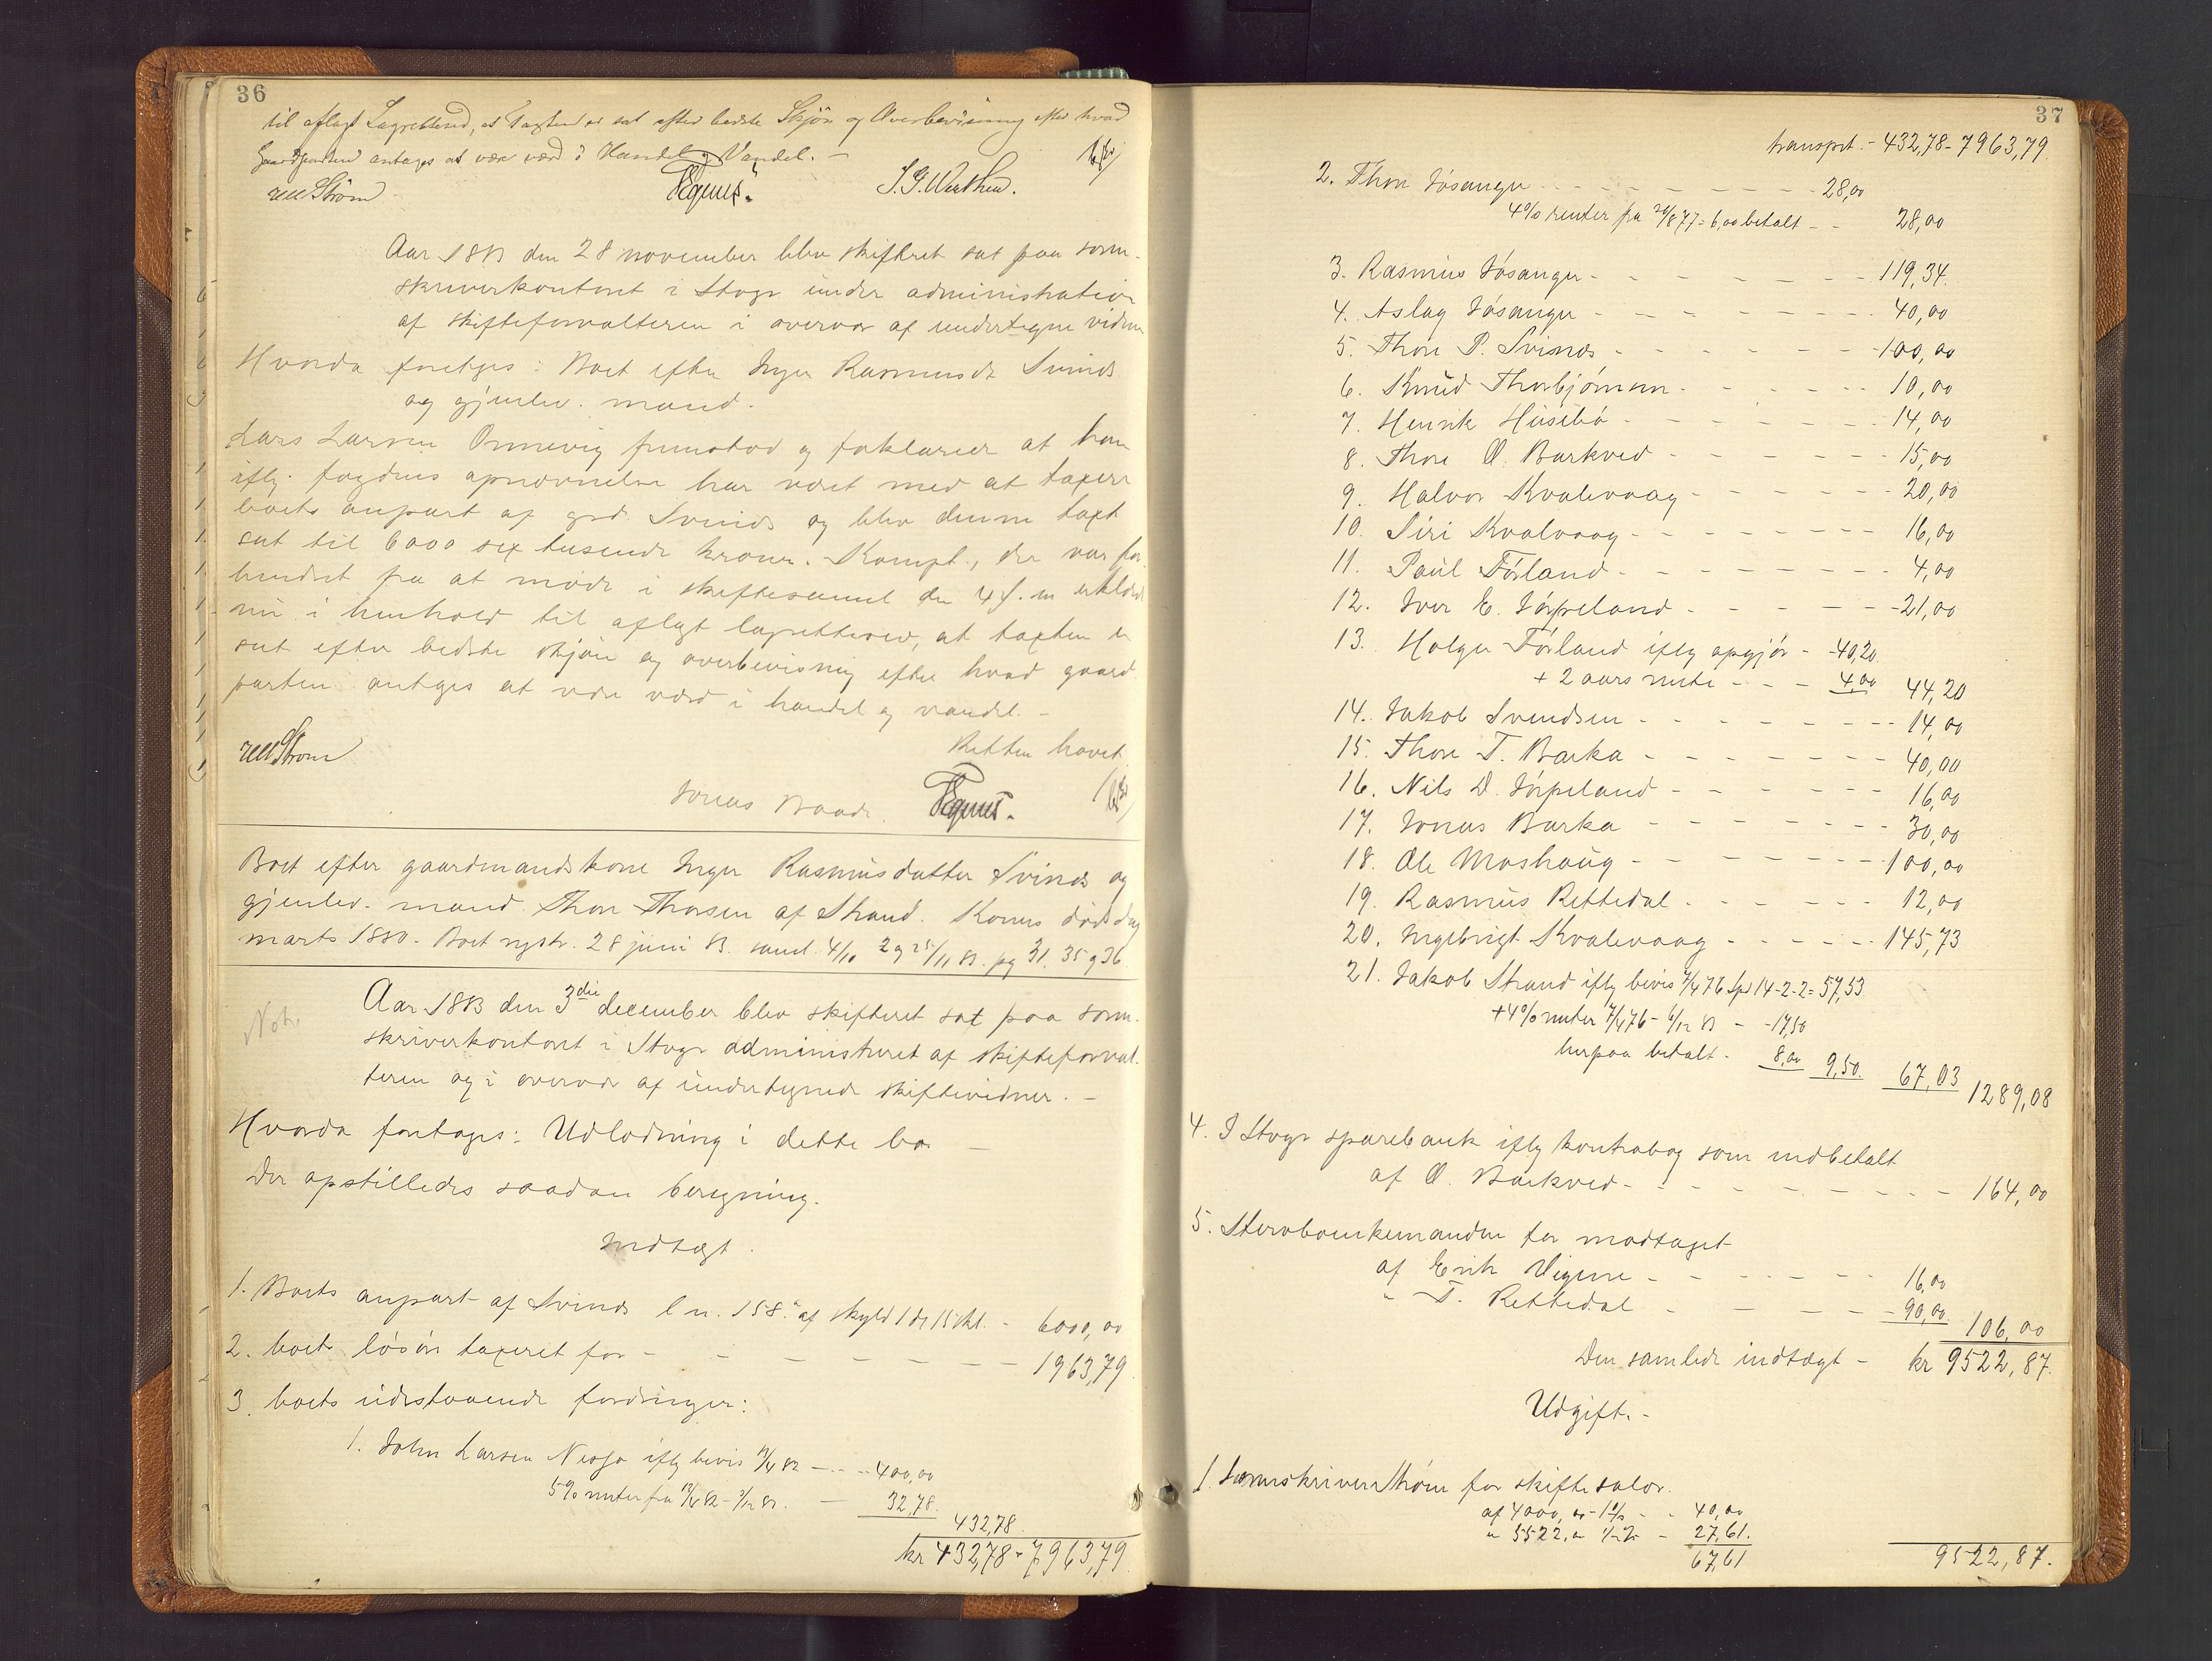 36
til aflagt Lagrettesed, at Taxten er sat efter bedste Skjøn og Overbeviisning efter hvad
Gaardparten antages at være værd i Handel og Vandel. —
Strøm
Aar 1883 den 28 november blev skifteret sat paa soren-
skriverkontoret i Stvgr under administration
af skifteforvalteren i overvær af undertegne vidner
Hvorda foretoges: Boet efter Inger Rasmusdr Svinæs
og gjenlev. mand.
Lars Larsen Ommevig fremstod og forklarer at han
iflg. fogdens opnævnelse har været med at taxere
boets anpart af grd. Svinæs og blev denne taxt
sat til 6000 sex tusende kroner. Kompt., der var for-
hindret fra at møde i skiftesaml. den 4 f. m. erklære
nu i henhold til aflagt lagrettesed, at taxten er
sat efter bedste skjøn og overbevisning efter hvad gaard
parten antages at være værd i handel og vandel. —
Retten hævet.
Strøm
Jonas
Boet efter gaardmandskone Inger Rasmusdatter Svinæs og
gjenlev. mand Thore Thorsen af Strand. Konens dødsdag
marts 1880. Boet regstr. 28 juni 83. saml. 4/10 2 og 28/11 83. pg 31. 35 og 36
Aar 1883 den 3die december blev skifteret sat paa soren-
skriverkontoret i Stvgr administreret af skifteforval-
teren og i overvær af undertegnede skiftevidner. —
Hvorda foretoges: Udlodning i dette bo —
Der opstilledes saadan beregning.
Indtægt.
1. Boets anpart af Svinæs l n. 158 af skyld 1 dr 15 skl. - 6000,00
2. boets løsøre taxeret for - - - - - 1963,79
3. boets udestaaende fordringer:
1. John Larsen iflg bevis 12/4 82 — 400,00
5% renter fra 12/4 82 - 3/12 83. — 32,78.
432,78.
kr 432,78 - 7963,79
37
transprt. - 432,78 - 7963,79.
2. Thore Jøsanger - - - - - 28,00
4% renter fra 20/8 77 = 6,00 betalt - - 28,00
3. Rasmus Jøsanger - - - - 119,34.
4. Aslag Jøsanger - - - - - 40,00
5. Thore P. Svinæs - - - - - 100,00
6. Knud Thorbjørnsen - - - - 10,00
7. Henrik Husebø - - - - - 14,00
8. Thore O. Barkved - - - - - 15,00
9. Halvor Kvalevaag - - - - - 20,00
10. Siri Kvalvaag - - - - - 16,00
11. Paul Førland - - - - - 4,00
12. Iver E. Jørpeland - - - - - 21,00
13. Holger Førland iflg opgjør - 40,20.
+ 2 aars rente - - - 4,00 44,20
14. Jakob Svendsen - - - - - 14,00
15. Thore T. Barka - - - - - 40,00
16. Nils D. Jørpeland - - - - - 16,00
17. Jonas Barka - - - - - 30,00
18. Ole Moshaug - - - - - 100,00
19. Rasmus Rettedal - - - - - 12,00
20. Ingebrigt Kvalevaag - - - - - 145,73
21. Jakob Strand iflg bevis 7/4 76 Spd 14-2-2 = 57,53
+ 4% renter 7/4 76 - 6/12 83 - - 17,50
herpaa betalt - 8,00 9,50. 67,03 1289,08
4. I Stvgr sparebank iflg kontrabog som indbetalt
af O. Barkved - - - - - 164,00
5. Stervboenkemanden for modtaget
af Erik Vigene - - - - - 16,00
" T. Rettedal - - - - - 90,00. 106,00
Den samlede indtægt - kr 9522,87.
Udgift. -
1. Sorenskriver Strøm for skiftesalær.
af 4000, - 1% - - 40,00
" 5522, - 1/2% - 27,61.
67,61
9522,87.